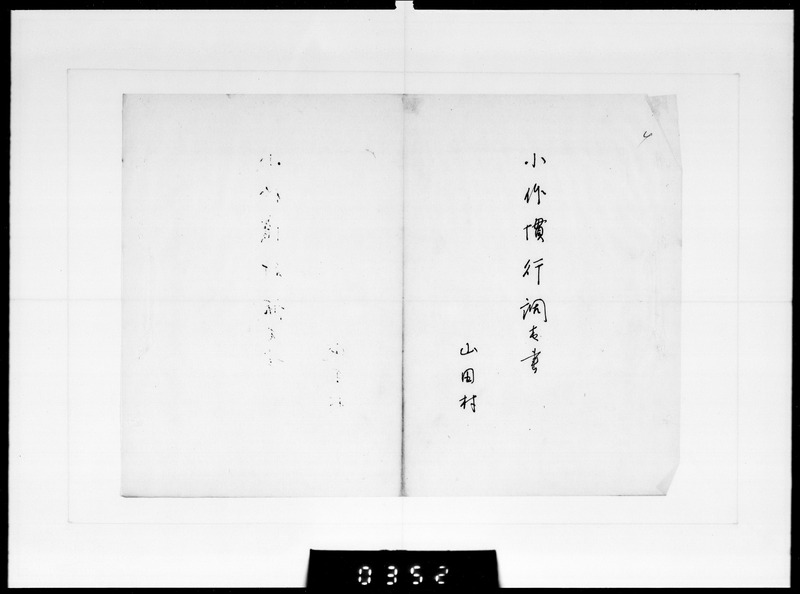 小作慣行調査書
山田村
0352